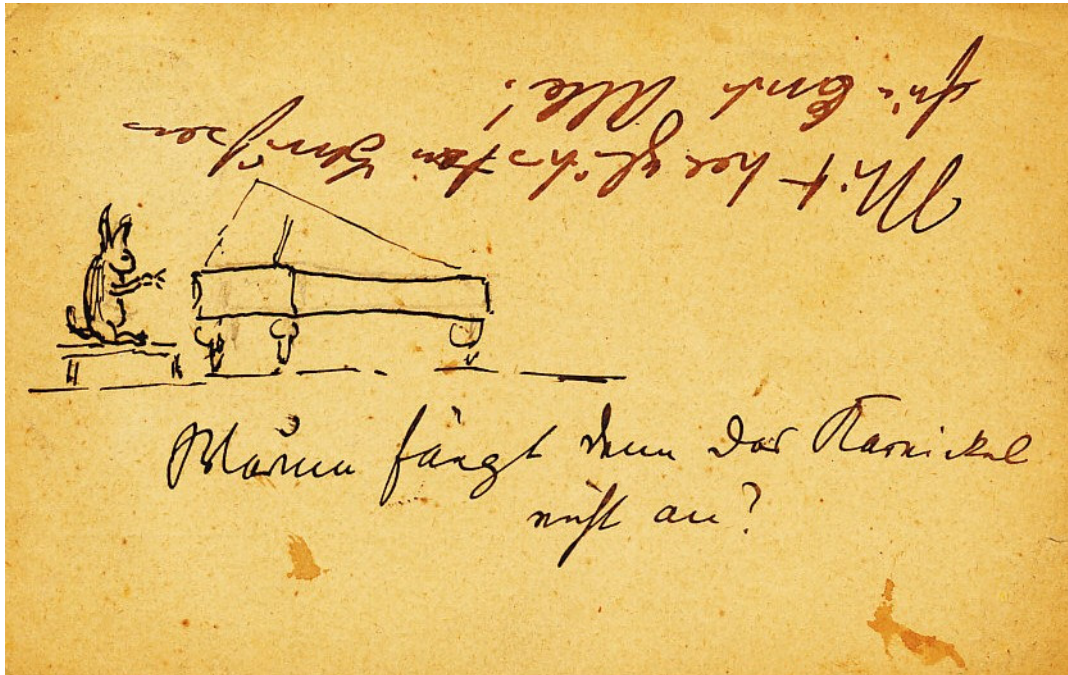 Mit herzlichsten Grüßen
für Euch Alle!
Warum fängt denn das Karnickel
nicht an?